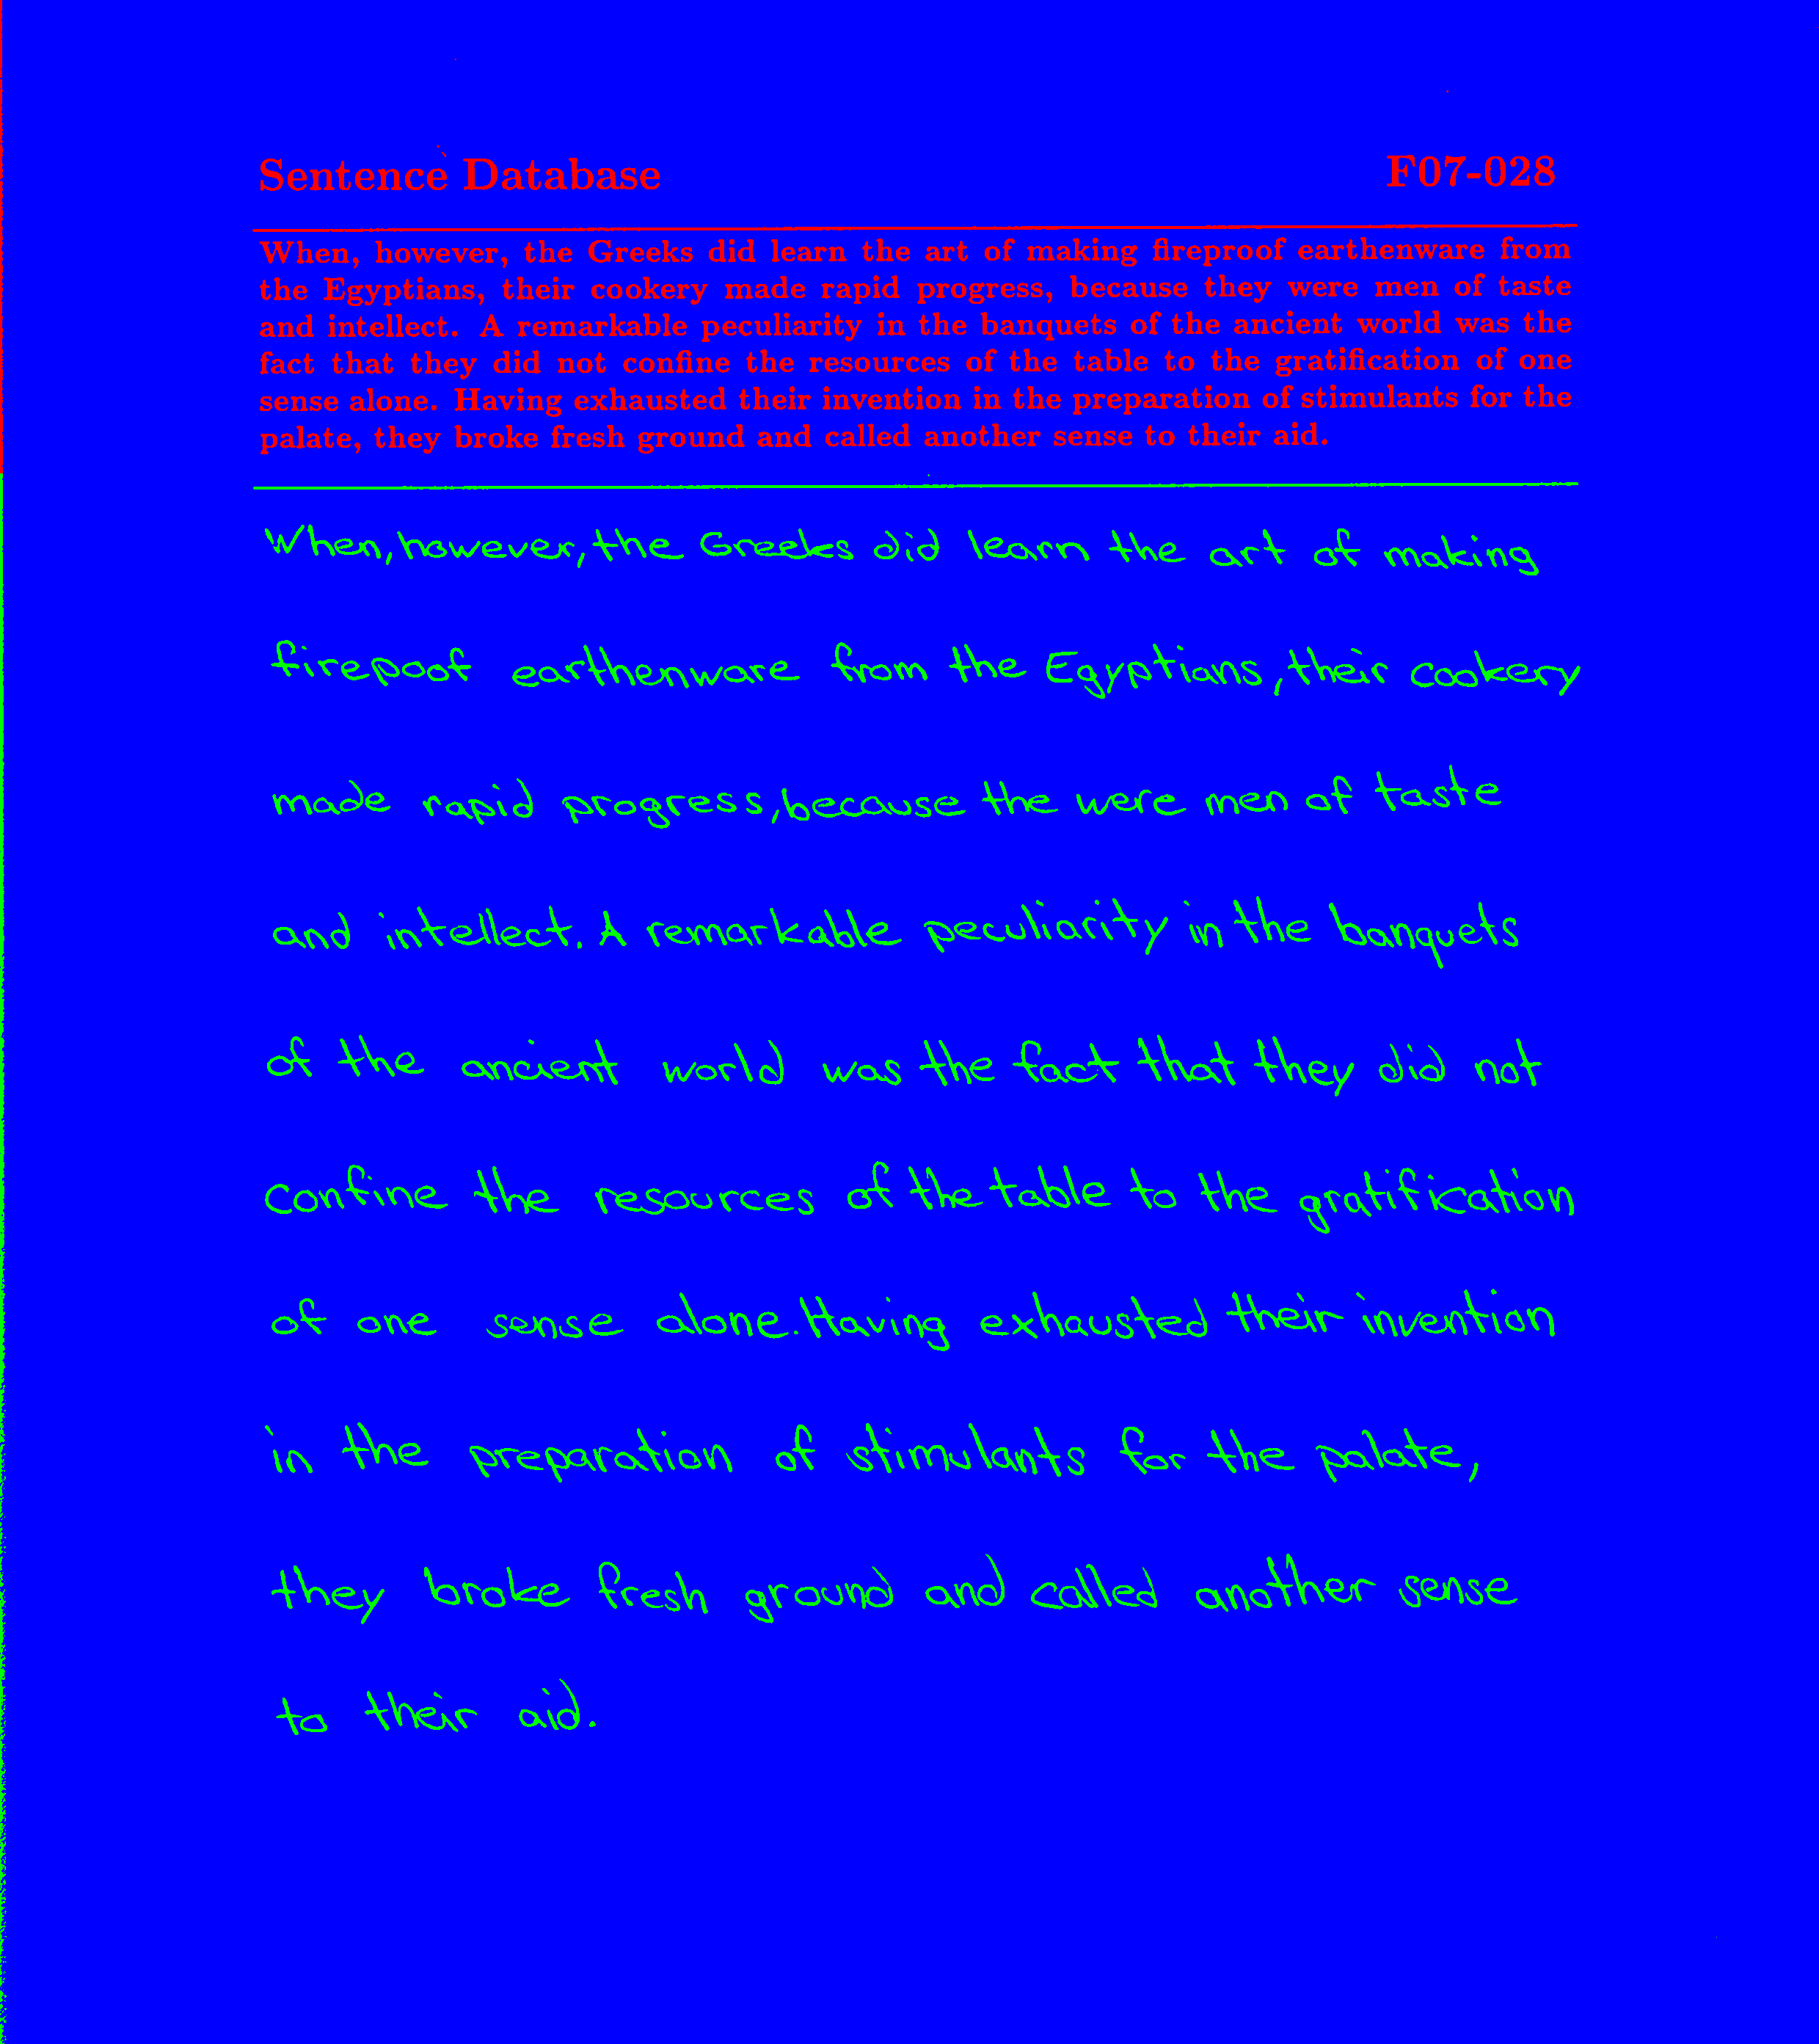 Sentence Database F07-028
When, however, the Greeks did learn the art of making fireproof earthenware from
the Egyptians, their cookery made rapid progress, because they were men of taste
and intellect. A remarkable peculiarity in the banquets of the ancient world was the
fact that they did not confine the resources of the table to the gratification of one
sense alone. Having exhausted their invention in the preparation of stimulants for the
palate, they broke fresh ground and called another sense to their aid.
When, however, the Greeks did learn the art of making
firepoof earthenware from the Egyptians, their cookery
made rapid progress, because the were men of taste
and intellect. A remarkable peculiarity in the banquets
of the ancient world was the fact that they did not
confine the resources of the table to the gratification
of one sense alone. Having exhausted their invention
in the preparation of stimulants for the palate,
they broke fresh ground and called another sense
to their aid.